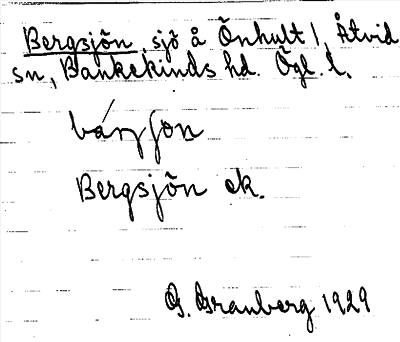 Bergsjön, sjö å Önhult 1, Åtvid
sn, Bankekinds hd. Ögl. l.
Bergsjön ek.
G. Granberg 1929